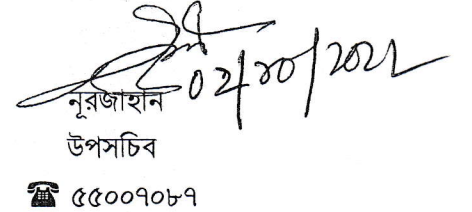 ০২/১০/২০২২
নূরজাহান
উপসচিব
☎ ৫৫০০৭০৮৭